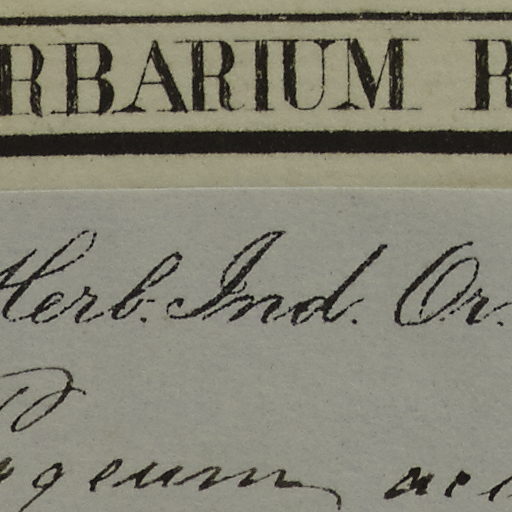 RBARIUM R
Herb. Ind. Or.
Pygeum ac